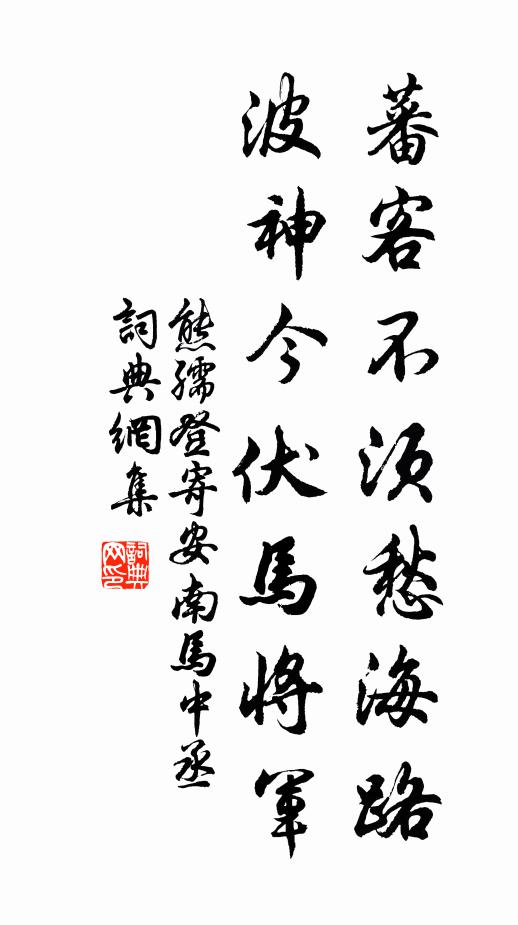 蕃客不須愁海路
波神今伏馬將軍
熊孺登寄安南馬中丞
詞典網集
詞典網印